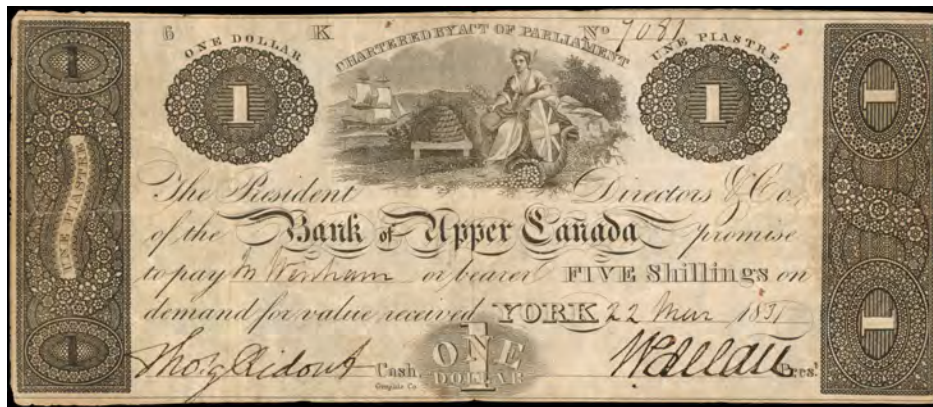 6 K No 7081
ONE DOLLAR CHARTERED BY ACT OF PARLIAMENT UNE PIASTRE
1 1 1 1
UNE PIASTRE
The President Directors & Co,
of the Bank of Upper Canada promise
to pay Wenham or bearer FIVE Shillings on
demand for value received YORK 22 Mar 1831
Thos G Ridout Cash. ONE DOLLAR 1 W Allan Pres.t
Graphic Co
1 1